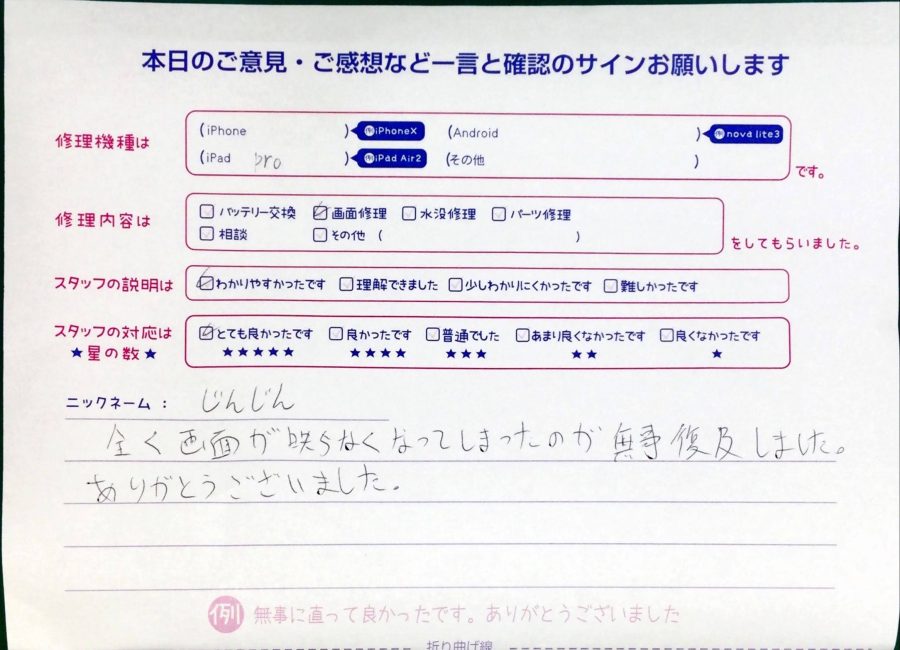 本日のご意見・ご感想など一言と確認のサインお願いします
修理機種は
(iPhone ) 例iPhoneX (Android ) 例nova lite3
(iPad pro ) 例iPad Air2 (その他 )
です。
修理内容は
バッテリー交換 画面修理 水没修理 パーツ修理
相談 その他 ( )
をしてもらいました。
スタッフの説明は
わかりやすかったです 理解できました 少しわかりにくかったです 難しかったです
スタッフの対応は
★星の数★
とても良かったです 良かったです 普通でした あまり良くなかったです 良くなかったです
★★★★★ ★★★★ ★★★ ★★ ★
ニックネーム: じんじん
全く画面が映らなくなってしまったのが無事復及しました。
ありがとうございました。
例 無事に直って良かったです。ありがとうございました
折り曲げ線